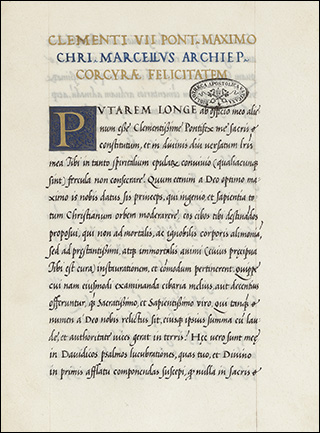 CLEMENTI VII PONT. MAXIMO
CHRI. MARCELLVS ARCHIEP.
CORCYRÆ FELICITATEM
PVTAREM LONGE ab officio meo alie
num esse Clementissime Pontifex me sacris
constitutum, et in divinis diu versatum libris
mea Tibi in tanto spiritalium epularum convivio (qualiacunque
sint) fercula non consecrare. Quum etenim a Deo optimo ma
ximo is nobis datus sis princeps, qui ingenio, et sapientia to
tum Christianum orbem moderarere: eos cibos tibi destinandos
proposui, qui non ad mortalis, ac ignobilis corporis alimoniam,
sed ad præstantissimi, atque immortalis animi (cuius præcipua
Tibi est cura) instaurationem, et commodum pertinerent. Quippe
cui nam eiusmodi examinanda cibaria melius, aut decentius
offeruntur, Sacratissimo, et Sapientissimo viro, qui
numen a Deo nobis relictus sit, eiusque ipsius summa cum lau
de, et authoritate vices gerat in terris? Hec vero sunt meæ
in Davidicos psalmos lucubrationes, quas tuo, et Divino
in primis afflatu componendas suscepi, nulla in sacris